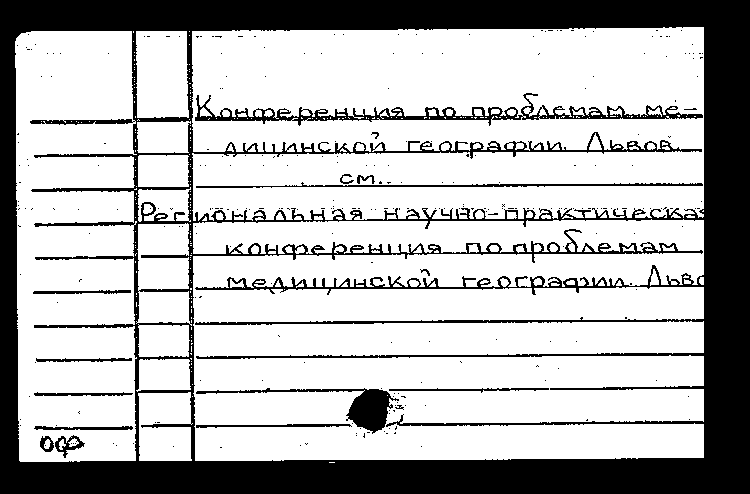 Конференция по проблемам ме-
дицинской географии. Львов.
см.
Региональная научно-практическая
конференция по проблемам
медицинской географии. Льво
ОФ